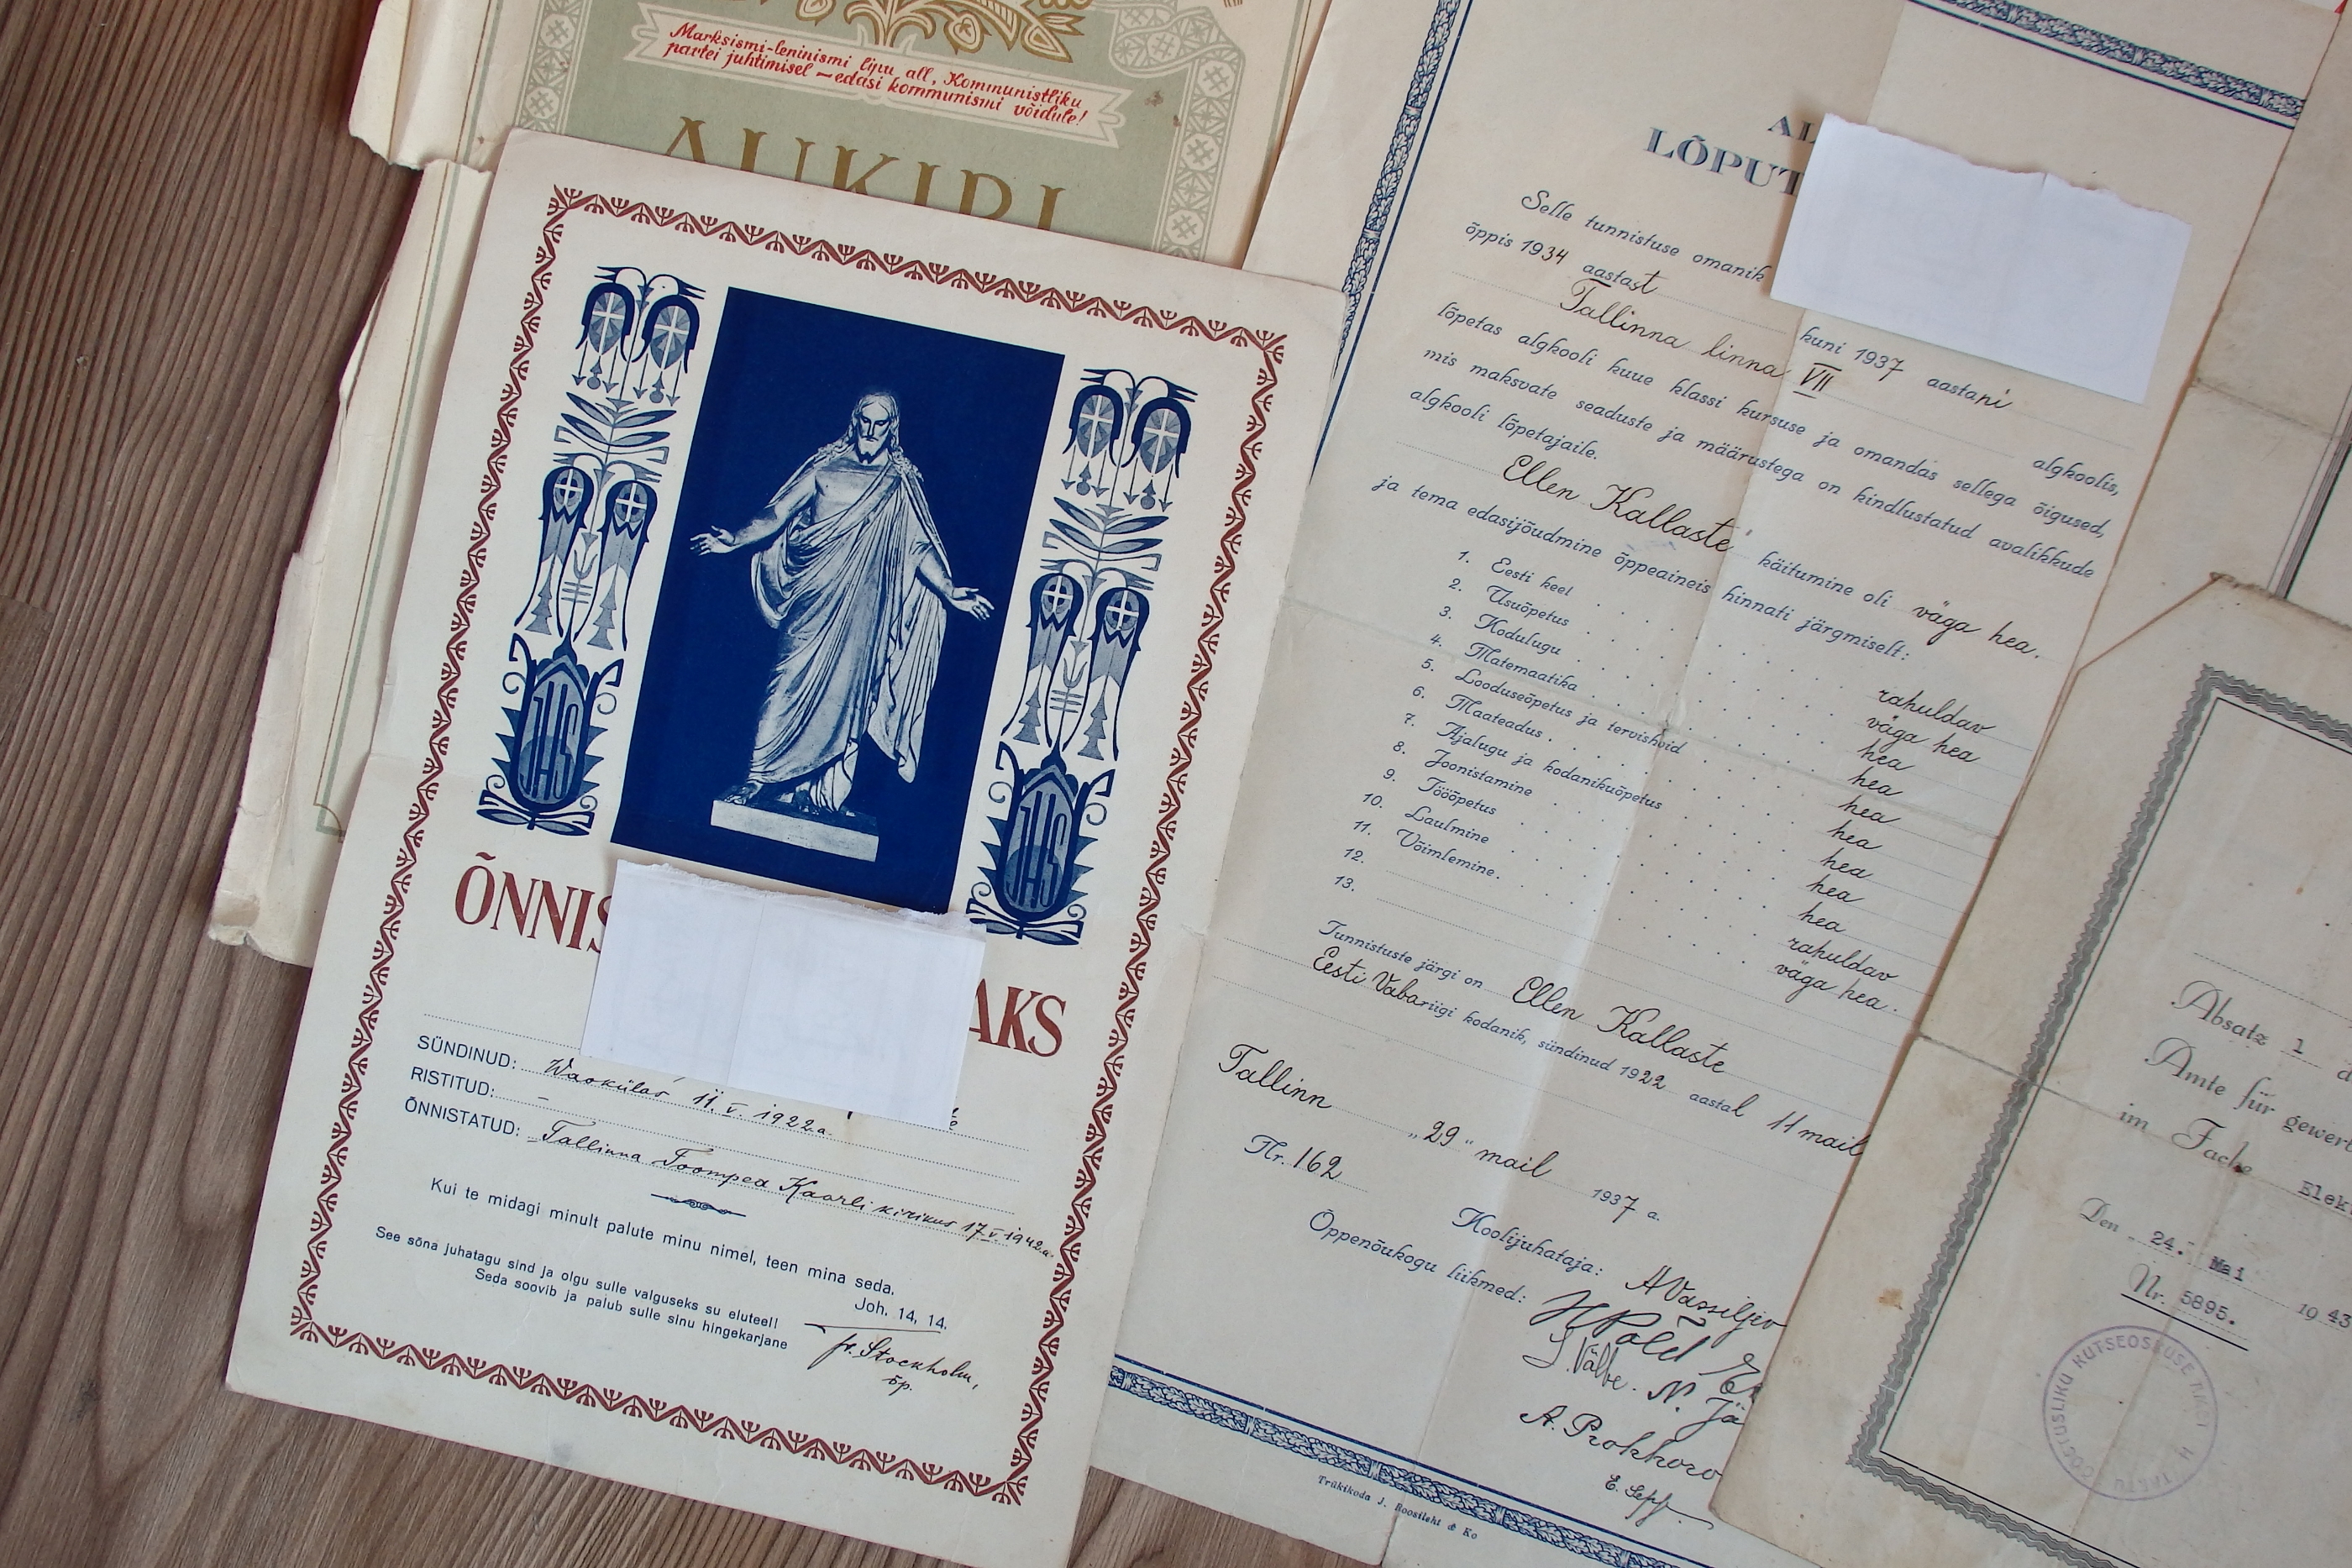 Marksismi-leninismi lipu all, Kommunistliku
partei juhtimisel — edasi kommunismi võidule!
AUKIRI
ÕNNIS
AKS
SÜNDINUD: Waokülas 11. V. 1922 a.
RISTITUD: –
ÕNNISTATUD: Tallinna Toompea Kaarli kirikus 17. V. 1942 a.
Kui te midagi minult palute minu nimel, teen mina seda.
Joh. 14, 14.
See sõna juhatagu sind ja olgu sulle valguseks su eluteel!
Seda soovib ja palub sulle sinu hingekarjane
Stockholm,
õp.
AL
LÕPUT
Selle tunnistuse omanik
õppis 1934 aastast kuni 1937 aastani
Tallinna linna VII algkoolis,
lõpetas algkooli kuue klassi kursuse ja omandas sellega õigused,
mis maksvate seaduste ja määrustega on kindlustatud avalikkude
algkooli lõpetajaile.
Ellen Kallaste' käitumine oli väga hea.
ja tema edasijõudmine õppeaineis hinnati järgmiselt:
1. Eesti keel rahuldav
2. Usuõpetus väga hea
3. Kodulugu hea
4. Matemaatika hea
5. Looduseõpetus ja tervishoid hea
6. Maateadus hea
7. Ajalugu ja kodanikuõpetus hea
8. Joonistamine hea
9. Tööõpetus hea
10. Laulmine rahuldav
11. Võimlemine väga hea.
12.
13.
Tunnistuste järgi on Ellen Kallaste
Eesti Vabariigi kodanik, sündinud 1922 aastal 11 mail
Tallinn „29" mail 1937 a.
Nr. 162
Koolijuhataja: A Vassiljev
Õppenõukogu liikmed: H Põld
Välbe. N. Jä
A. Prokhoro
E. Sepp.
Trükikoda J. Roosileht & Ko
Absatz 1 d
Amte für gewerb
im Fache Elek
Den 24. Mai 1943
Nr. 5895.